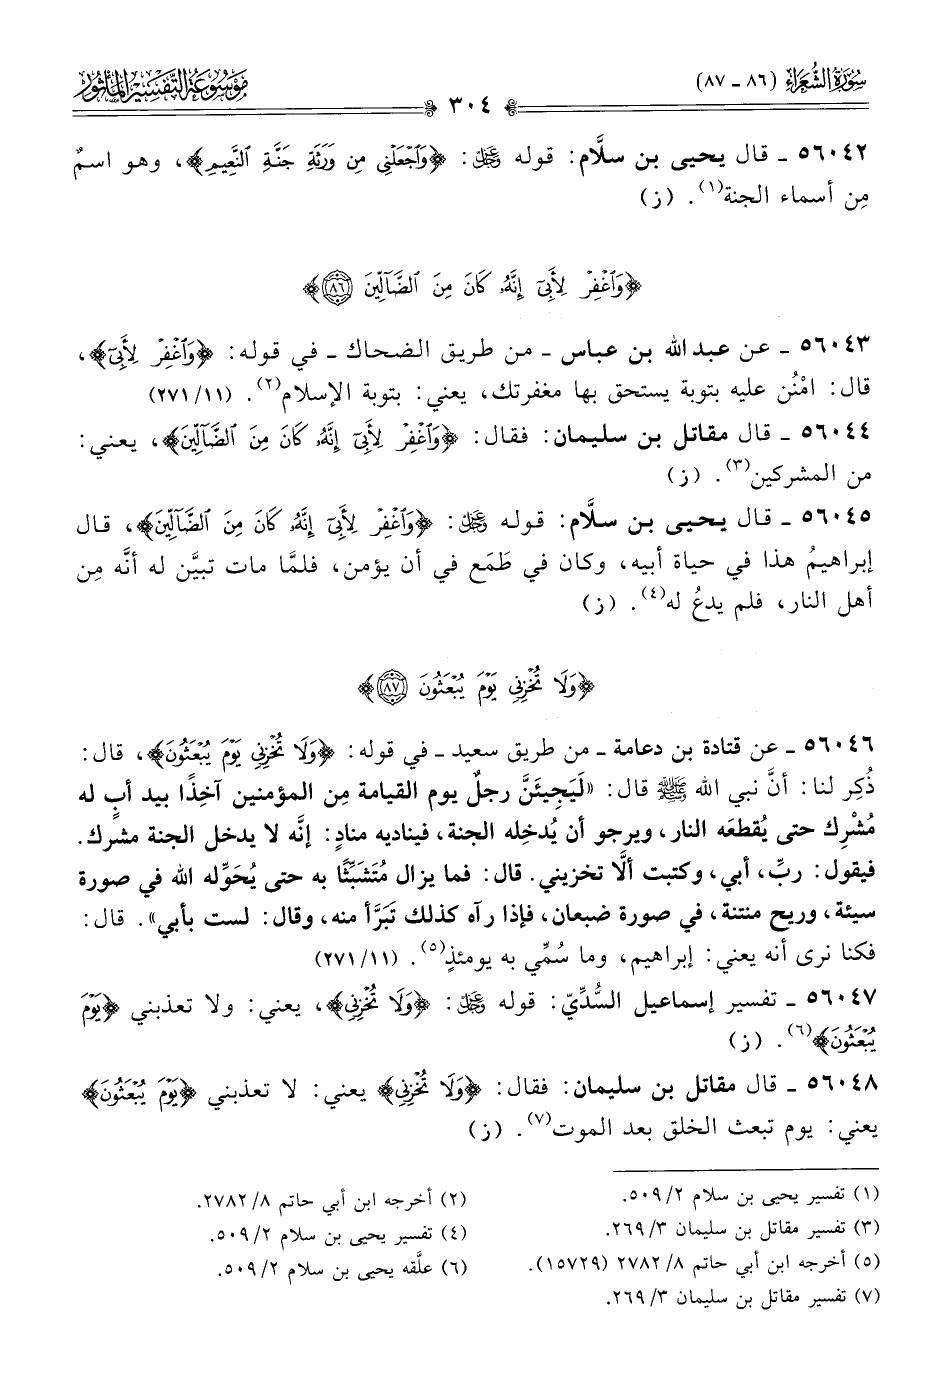 سُورَةُ الشُّعَرَاءِ (٨٦ ـ ٨٧)
٣٠٤
مَوْسُوعَةُ التَّفْسِيرِ المَأْثُورِ
٥٦٠٤٢ ـ قال يحيى بن سلَّام: قوله ﷿: ﴿وَٱجْعَلْنِى مِن وَرَثَةِ جَنَّةِ ٱلنَّعِيمِ﴾، وهو اسمٌ
مِن أسماء الجنة(١). (ز)
﴿وَٱغْفِرْ لِأَبِىٓ إِنَّهُۥ كَانَ مِنَ ٱلضَّآلِّينَ ٨٦﴾
٥٦٠٤٣ ـ عن عبد الله بن عباس ـ من طريق الضحاك ـ في قوله: ﴿وَٱغْفِرْ لِأَبِىٓ﴾،
قال: امْنُن عليه بتوبة يستحق بها مغفرتك، يعني: بتوبة الإسلام(٢). (٢٧١/١١)
٥٦٠٤٤ ـ قال مقاتل بن سليمان: فقال: ﴿وَٱغْفِرْ لِأَبِىٓ إِنَّهُۥ كَانَ مِنَ ٱلضَّآلِّينَ﴾، يعني:
من المشركين(٣). (ز)
٥٦٠٤٥ ـ قال يحيى بن سلَّام: قوله ﷿: ﴿وَٱغْفِرْ لِأَبِىٓ إِنَّهُۥ كَانَ مِنَ ٱلضَّآلِّينَ﴾، قال
إبراهيمُ هذا في حياة أبيه، وكان في طَمَع في أن يؤمن، فلمَّا مات تبيَّن له أنَّه مِن
أهل النار، فلم يدعُ له(٤). (ز)
﴿وَلَا تُخْزِنِى يَوْمَ يُبْعَثُونَ ٨٧﴾
٥٦٠٤٦ ـ عن قتادة بن دعامة ـ من طريق سعيد ـ في قوله: ﴿وَلَا تُخْزِنِى يَوْمَ يُبْعَثُونَ﴾، قال:
ذُكِر لنا: أنَّ نبي الله ﷺ قال: «لَيَجِيئَنَّ رجلٌ يوم القيامة مِن المؤمنين آخِذًا بيد أبٍ له
مُشْرِك حتى يُقطعَه النار، ويرجو أن يُدخِله الجنة، فيناديه منادٍ: إنَّه لا يدخل الجنة مشرك.
فيقول: ربِّ، أبي، وكتبت ألَّا تخزيني. قال: فما يزال مُتَشَبِّثًا به حتى يُحَوِّله الله في صورة
سيئة، وريح منتنة، في صورة ضبعان، فإذا رآه كذلك تَبَرَّأ منه، وقال: لست بأبي». قال:
فكنا نرى أنه يعني: إبراهيم، وما سُمِّي به يومئذٍ(٥). (٢٧١/١١)
٥٦٠٤٧ ـ تفسير إسماعيل السُّدِّيّ: قوله ﷿: ﴿وَلَا تُخْزِنِى﴾، يعني: ولا تعذبني ﴿يَوْمَ
يُبْعَثُونَ﴾(٦). (ز)
٥٦٠٤٨ ـ قال مقاتل بن سليمان: فقال: ﴿وَلَا تُخْزِنِى﴾ يعني: لا تعذبني ﴿يَوْمَ يُبْعَثُونَ﴾
يعني: يوم تبعث الخلق بعد الموت(٧). (ز)
(١) تفسير يحيى بن سلام ٥٠٩/٢.
(٢) أخرجه ابن أبي حاتم ٢٧٨٢/٨.
(٣) تفسير مقاتل بن سليمان ٢٦٩/٣.
(٤) تفسير يحيى بن سلام ٥٠٩/٢.
(٥) أخرجه ابن أبي حاتم ٢٧٨٢/٨ (١٥٧٢٩).
(٦) علَّقه يحيى بن سلام ٥٠٩/٢.
(٧) تفسير مقاتل بن سليمان ٢٦٩/٣.